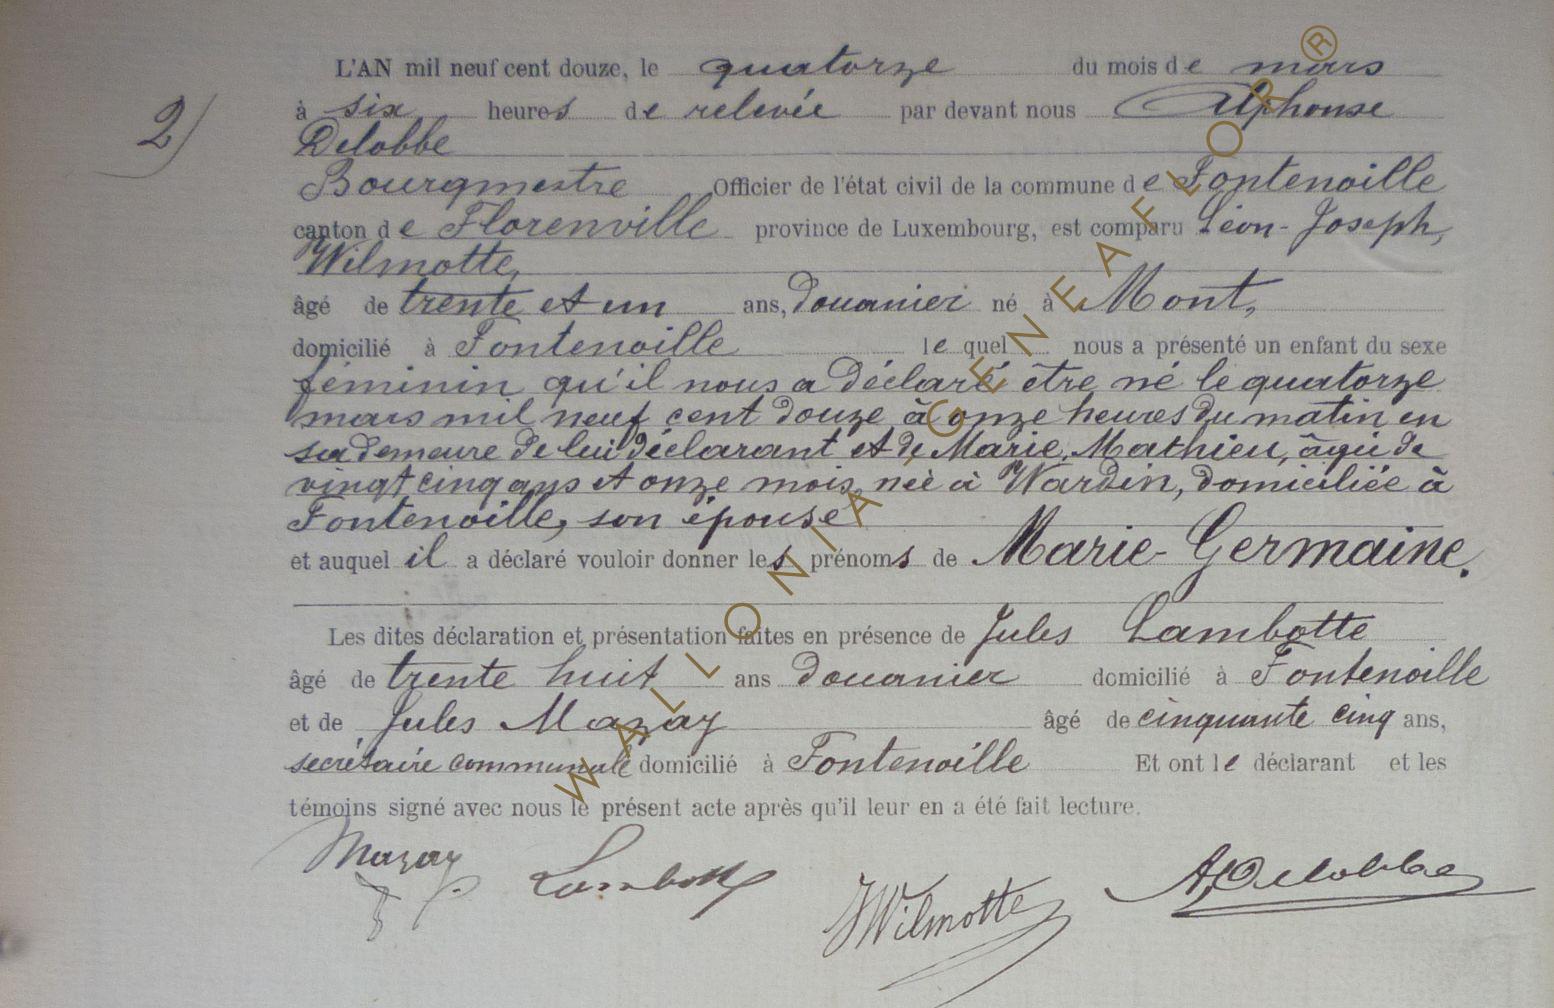 L'AN mil neuf cent douze, le quatorze du mois de mars
2) à six heures de relevée par devant nous Alphonse
Delobbe
Bourgmestre Officier de l'état civil de la commune de Fontenoille
canton de Florenville province de Luxembourg, est comparu Léon-Joseph,
Wilmotte,
âgé de trente et un ans, douanier né à Mont,
domicilié à Fontenoille lequel nous a présenté un enfant du sexe
féminin qu'il nous a déclaré être né le quatorze
mars mil neuf cent douze à onze heures du matin en
sa demeure de lui déclarant et de Marie, Mathieu, âgée de
vingt cinq ans et onze mois, née à Wardin, domiciliée à
Fontenoille, son épouse
et auquel il a déclaré vouloir donner les prénoms de Marie-Germaine.
Les dites déclaration et présentation faites en présence de Jules Lambotte
âgé de trente huit ans douanier domicilié à Fontenoille
et de Jules Mazay âgé de cinquante cinq ans,
secrétaire communale domicilié à Fontenoille Et ont le déclarant et les
témoins signé avec nous le présent acte après qu'il leur en a été fait lecture.
Mazay Lambotte JWilmotte A, Delobbe
WALLONIA, GENEAFLOR ®